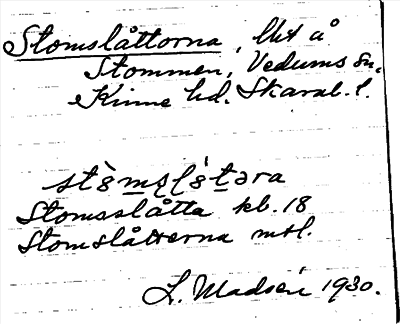 Stomslåttorna,
Stommen, Vedums sn,
Kinne hd. Skarab. l.
Stomsslåtta kb. 18
Stomslåtterna mtl.
L. Madsén 1930.